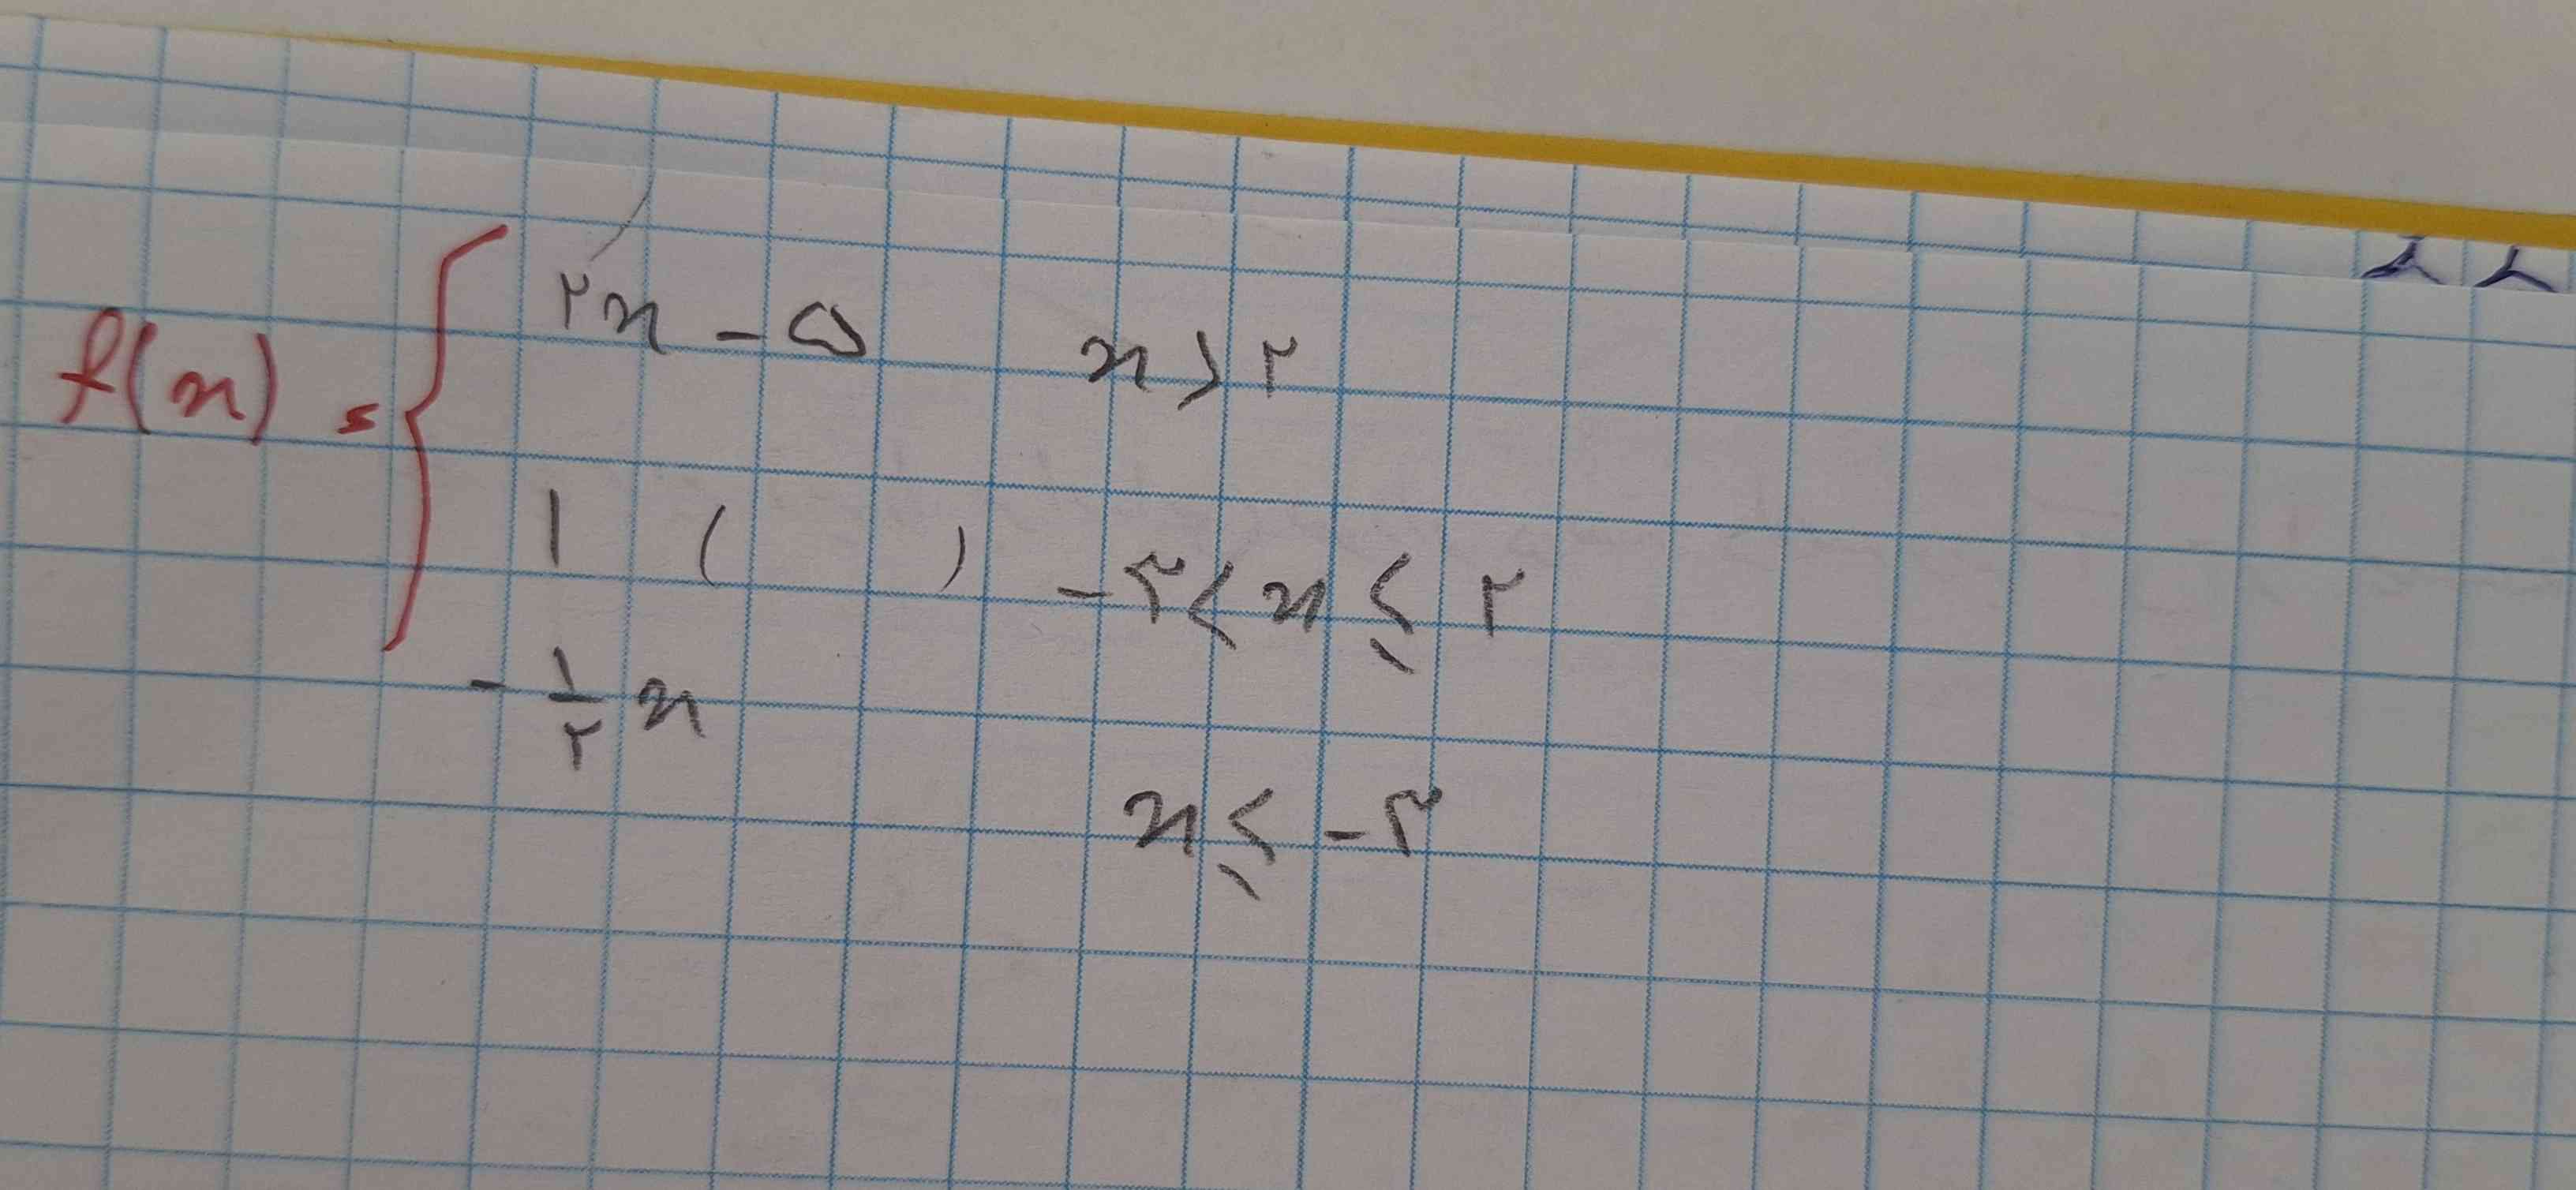 f(x) = { ۲x - ۵    x > ۲
۱ (    )    -۳ < x ≤ ۲
-۱/۲ x
x ≤ -۳